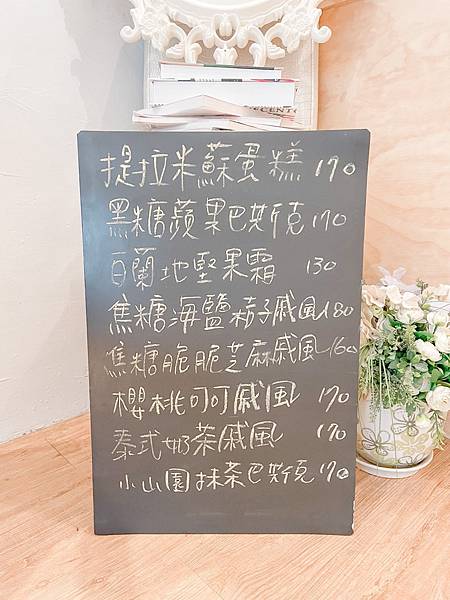 提拉米蘇蛋糕 170
黑糖蘋果巴斯克 170
百蘭地堅果霜 130
焦糖海鹽柿子戚風 180
焦糖脆脆芝麻戚風 160
櫻桃可可戚風 170
泰式奶茶戚風 170
小山園抹茶巴斯克 170